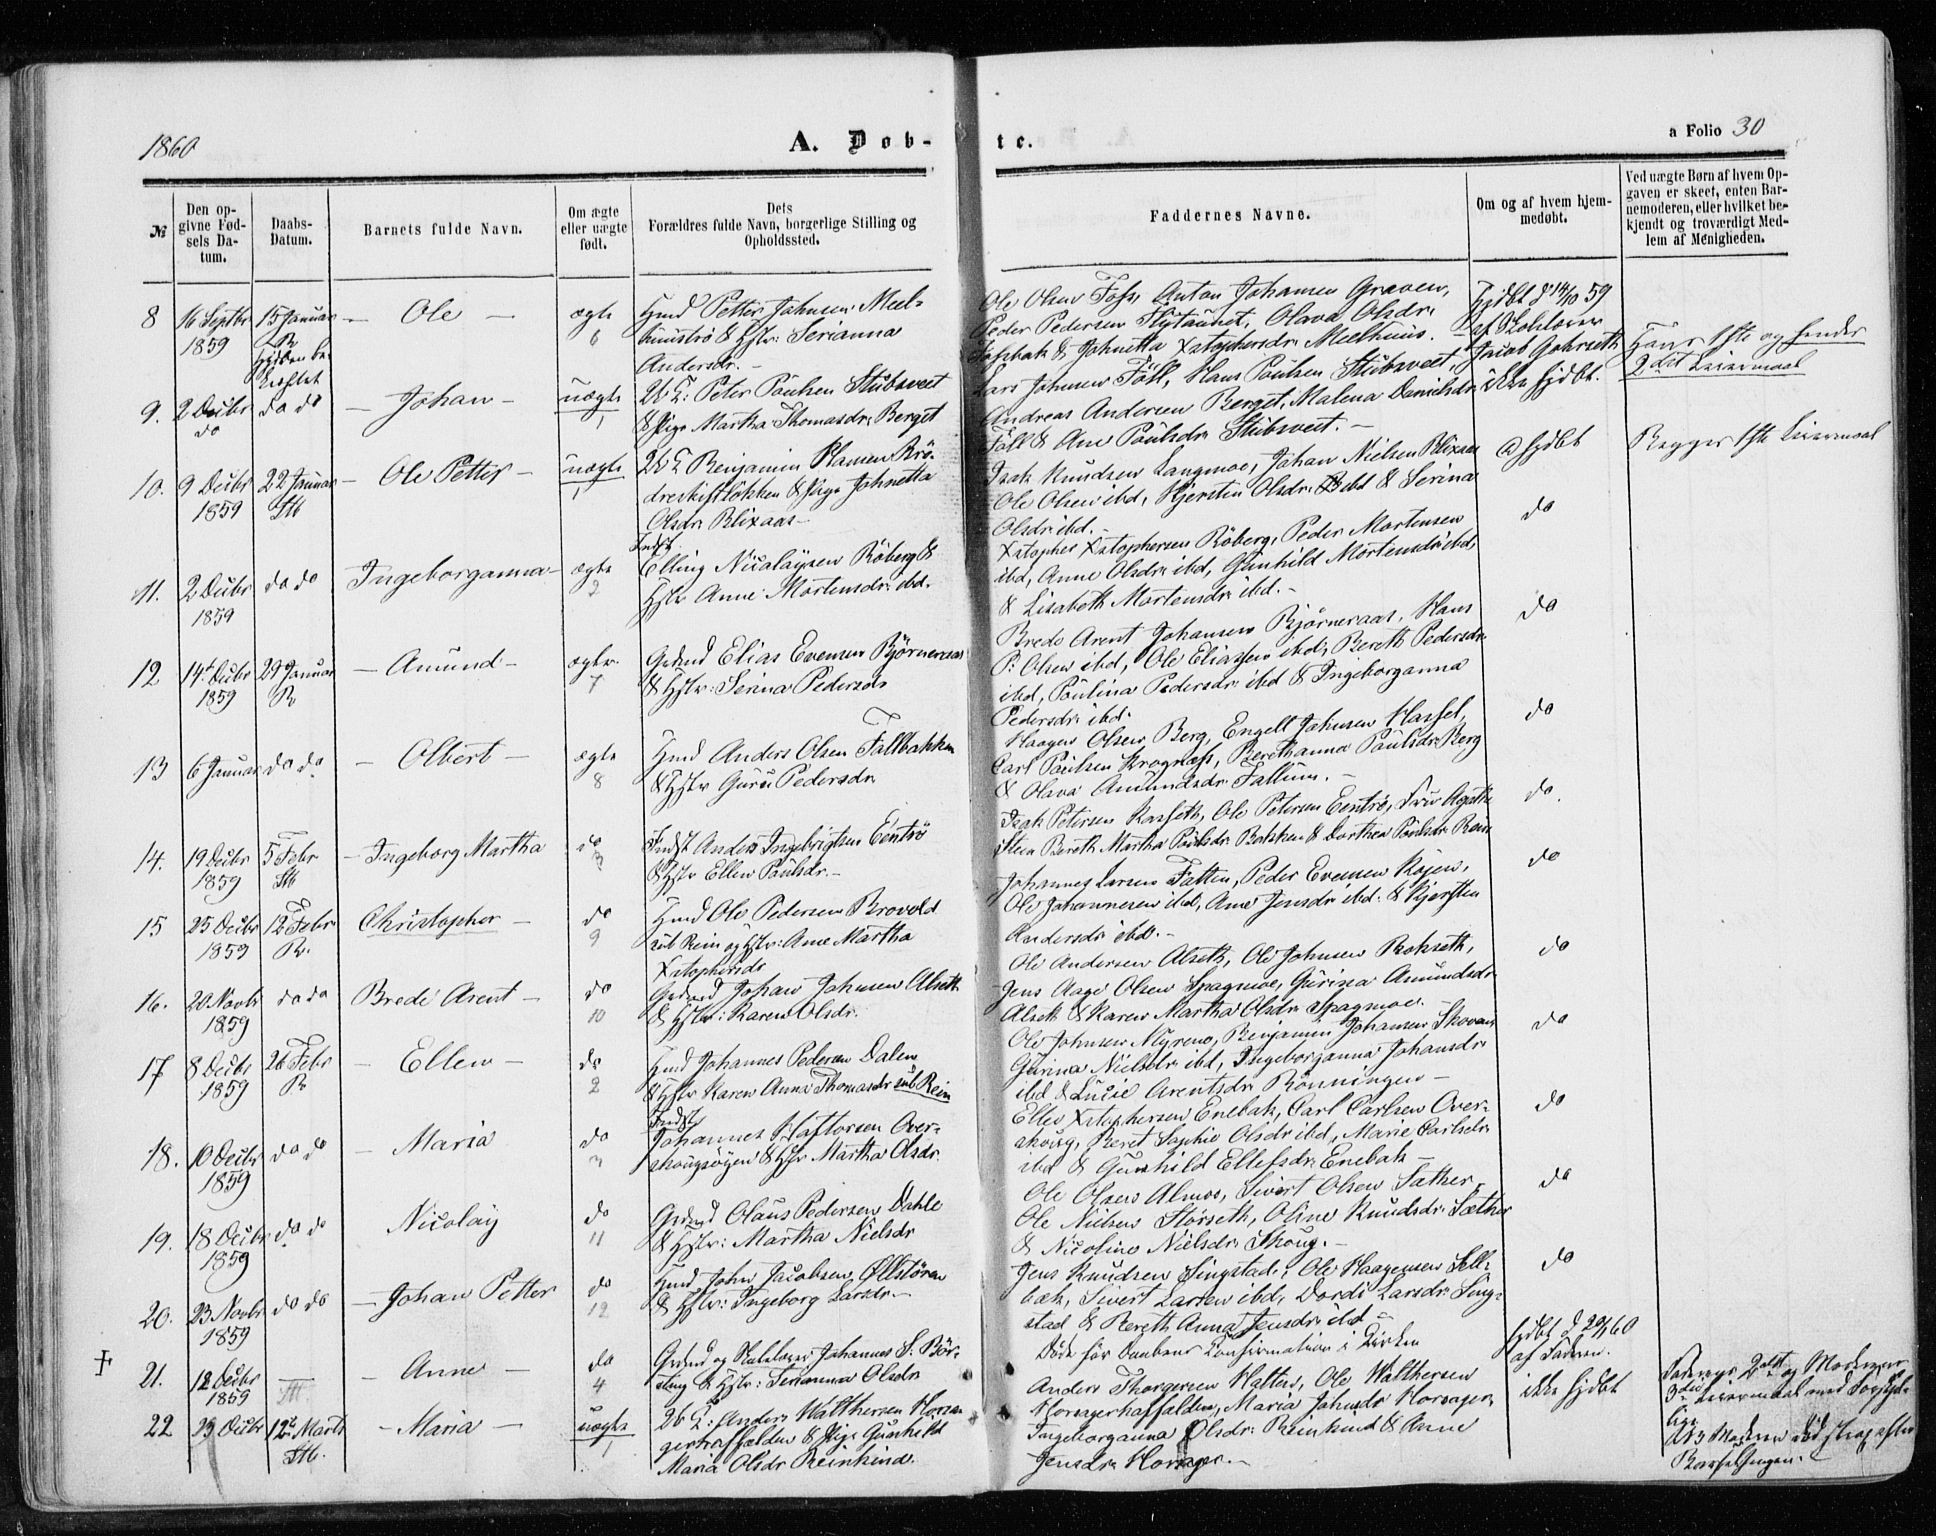 1860
A. Dob-
te.
a Folio 30
№
Den op-
givne Fød-
sels Da-
tum.
Daabs-
Datum.
Barnets fulde Navn.
Om ægte
eller uægte
født.
Dets
Forældres fulde Navn, borgerlige Stilling og
Opholdssted.
Faddernes Navne.
Om og af hvem hjem-
medøbt.
Ved uægte Børn af hvem Op-
gaven er skeet, enten Bar-
nemoderen, eller hvilket be-
kjendt og troværdigt Med-
lem af Menigheden.
8
16 Septbr
1859
15 Januar
R
— Ole —
ægte
6
Hmd Petter Johnsen Meel-
& Hstr: Serianna
Andersdr. —
Ole Olsen Foss, Anton Johansen Graven,
Peder Pedersen Olava Olsdr.
& Johnetta Xstophersdr. Meelhuus. —
Hjdbt d 14/10 59
af Skolelærer
Jacob
9.
2 Decbr
do
do do
— Johan —
uægte
1
Peter Paulsen Stubsveet
& Pige Martha Thomasdr. Berget
Lars Johnsen Föll, Hans Paulsen Stubsveet,
Andreas Andersen Berget, Malena Danielsdr.
Föll & Ane Paulsdr. Stubsveet. —
ikke hjdbt.
Hans 1ste og hendes
2det Leiermaal
10.
9 Decbr
1859
22 Januar
St
— Ole Petter —
uægte
1
Benjamin Hansen
& Pige Johnetta
Olsdr. Blixaas —
Isak Knudsen Langmoe, Johan Nielsen Blixaas
Ole Olsen ibd, Kjersten Olsdr. ibd & Serina
Olsdr. ibd. —
hjdbt
Begges 1ste Leiermaal
11.
2 Decbr
1859
do do
Ingeborganna —
ægte
2
Indst
Elling Nicolaysen Röberg &
Hstr Anne Mortensdr. ibd.
Xstopher Xstophersen Röberg, Peder Mortensen
ibd, Anne Olsdr. ibd, Gunhild Mortensdr. ibd,
& Lisabeth Mortensdr. ibd. —
do
12
14 Decbr
1859
29 Januar
R
— Amund —
ægte
7
Grdmd Elias Evensen Bjørneraas
& Hstr: Serina Pedersdr
Brede Arent Johansen Bjørneraas, Hans
P: Olsen ibd, Ole Eliassen ibd, Bereth Pedersdr.
ibd, Paulina Pedersdr. ibd & Ingeborganna
Pedersdr. ibd.
do
13
6 Januar
do do
— Olbert —
ægte
8
Hmd Anders Olsen Fallbakken
& Hstr Guru Pedersdr.
Haagen Olsen Berg, Engelt Johnsen Hassel,
Carl Paulsen Berethanna Paulsdr. Berg
& Olava Amundsdr. Fallun. —
do
14.
19 Decbr
1859
5 Febr
St
— Ingeborg Martha
do
3
Indst Anders Ingebrigtsen Eentrö
& Hstr Ellen Paulsdr. —
Isak Petersen Ole Petersen Eentrö,
Bereth Martha Paulsdr. Bakken & Dorthea Paulsdr. Rein
do.
15
25 Decbr
1859
12 Febr
R.
Christopher —
do
9
Hmd Ole Pedersen Brovold
sub Rein og Hstr: Ane Martha
Xstophersdr
Johannes Larsen Fatten, Peder Evensen
Ole Johannesen ibd, Ane Jensdr. ibd. & Kjersten
Andersdr. ibd. —
do
16.
20 Novbr
1859
do do
Brede Arent —
do
10
Grdmd Johan Johnsen Alseth
& Hstr: Karen Olsdr.
Ole Andersen Alseth, Ole Johnsen Rokseth,
Jens Aage Olsen Spagmoe, Gurina Amundsdr.
Alseth & Karen Martha Olsdr. Spagmoe.
do
17
8 Decbr
1859
26 Febr
R
— Ellen —
do
2
Hmd Johannes Pedersen Dalen
& Hstr Karen Anna Thomasdr. sub Rein
Ole Johnsen Benjamin Johansen
Gurina Nielsdr. ibd, Ingeborganna Johansdr.
ibd & Lucie Arentsdr. Rönningen —
do
18.
10 Decbr
1859
do do
— Maria
do
3
Indst
Johannes Haftorsen Over-
& Hstr Martha Olsdr.
Ellev Xstophersen Enebak, Carl Carlsen Over-
skoug, Beret Sophie Olsdr. ibd, Marie Carlsdr.
ibd & Gunhild Ellefsdr. Enebak —
do
19.
18 Decbr
1859
do do
Nicolay
do
11
Grdmd Olaus Pedersen Dahle
& Hstr: Martha Nielsdr
Ole Olsen Almos, Sivert Olsen Sæther,
Ole Nielsen Störseth, Oline Knudsdr. Sæther
& Nicoline Nielsdr. Skoug. —
do
20.
23 Novbr
1859
do do
— Johan Petter
do
12
Hmd John Jacobsen
& Hstr: Ingeborg Larsdr. —
Jens Knudsen Singstad, Ole Haagensen Sell-
bæk, Sivert Larsen ibd, Dordi Larsdr. Sing-
stad & Bereth Anna Jensdr. ibd —
do
21.
12 Decbr
1859
—
St.
— Anne —
do
4
Grdmd og Johannes S. Bör-
sting & Hstr: Serianna Olsdr
Döde før Daabens Confirmation i Kirken
hjdbt d 29/1 60
af Faderen.
22
23 Decbr
12 Marts
St.
— Maria —
uægte
1
Anders Walthersen
& Pige Gunhild
Maria Olsdr Reinkind.
Anders Thorgersen Hatten, Ole Walthersen
Maria Johnsdr.
Ingeborganna Olsdr. Reinkind & Anne
Jensdr. —
ikke hjdbt
Faderens 2det og Moderens
3die Leiermaal med
NB Moderen død strax efter
Barselsengen.